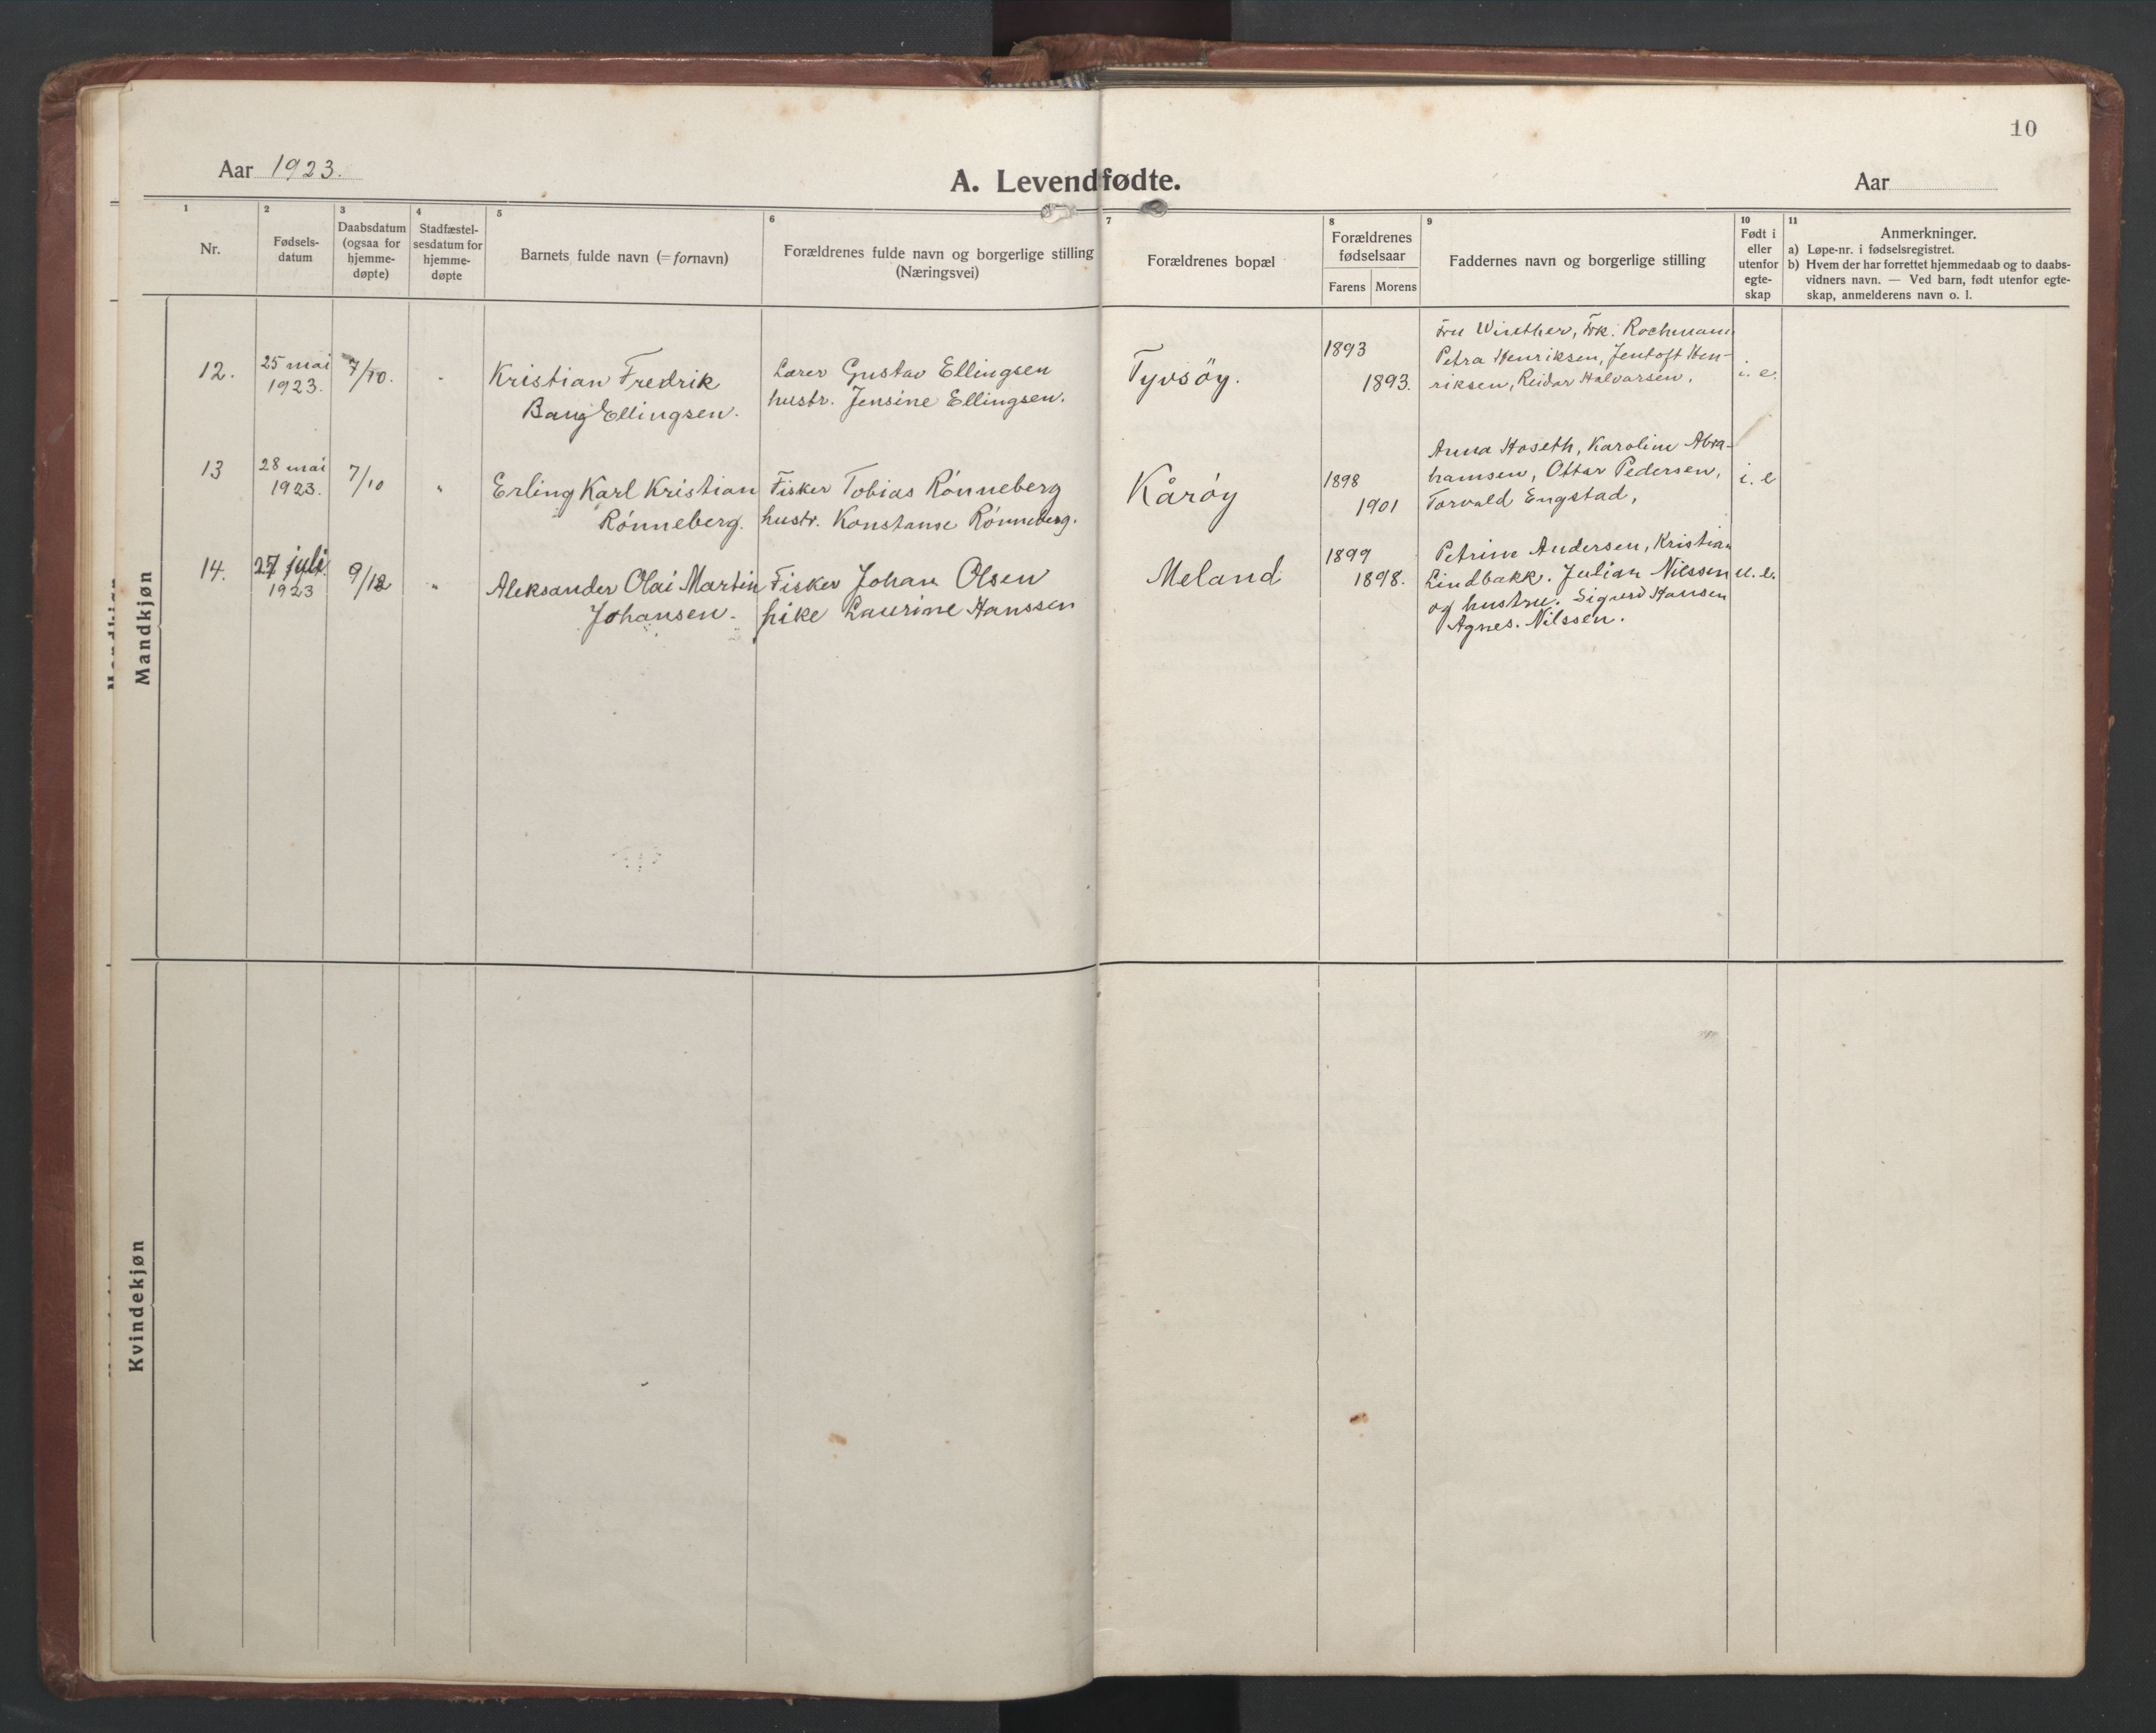 10
Aar 1923.
A. Levendfødte.
Aar
1 2 3 4 5 6 7 8 9 10 11
Nr.
Fødsels-
datum
Daabsdatum
(ogsaa for
hjemme-
døpte)
Stadfæstel-
sesdatum for
hjemme-
døpte
Barnets fulde navn (= fornavn)
Forældrenes fulde navn og borgerlige stilling
(Næringsvei)
Forældrenes bopæl
Forældrenes
fødselsaar
Farens Morens
Faddernes navn og borgerlige stilling
Født i
eller
utenfor
egte-
skap
Anmerkninger.
a) Løpe-nr. i fødselsregistret.
b) Hvem der har forrettet hjemmedaab og to daabs-
vidners navn. — Ved barn, født utenfor egte-
skap, anmelderens navn o. l.
Mandkjøn
12.
25 mai
1923.
7/10.
Kristian Fredrik
Bang Ellingsen.
Lærer Gustav Ellingsen
hustr. Jensine Ellingsen.
Tyvsöy.
1893
1893.
Fru Winther, Frk. Rochmann
Petra Henriksen, Jentoft Hen-
riksen, Reidar Halvarsen,
i. e.
13
28 mai
1923.
7/10
"
Erling Karl Kristian
Rönneberg.
Fisker Tobias Rönneberg
hustr. Konstanse Rönneberg.
Kåröy
1898
1901
Anna Hoseth, Karoline Abra-
hamsen, Ottar Pedersen,
Torvald Engstad,
i. e
14.
27 juli
1923
9/12
"
Aleksander Olai Martin
Johansen.
Fisker Johan Olsen
pike Laurine Hanssen
Meland
1899
1898.
Petrine Andersen, Kristian
Lindbakk. Julian Nilssen
og hustru. Sigurd Hansen
Agnes. Nilssen.
u. e.
Kvindekjøn